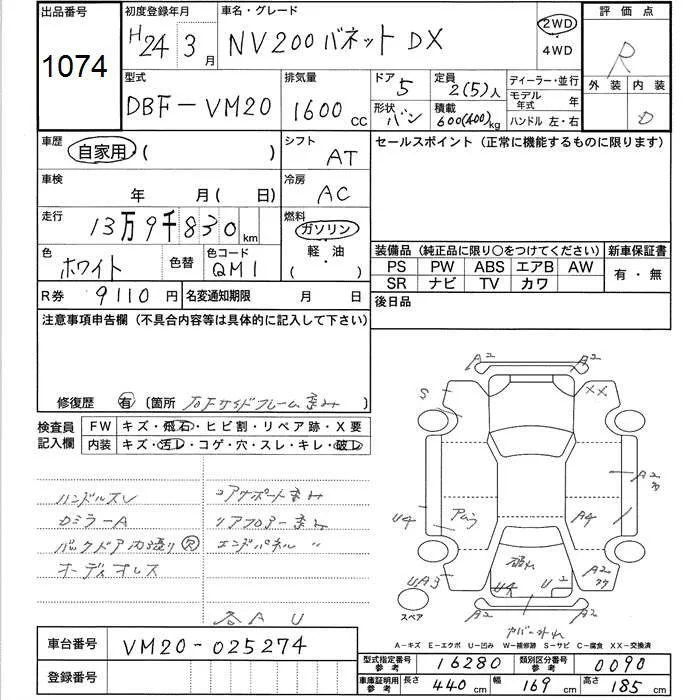 出品番号 初度登録年月 車名・グレード 評価点
1074 H24 3月 NV200 バネット DX 2WD 4WD R
型式 排気量 ドア 5 定員 2(5)人 ディーラー・並行 外装 内装
DBF-VM20 1600 CC 形状 バン 積載 600(400)kg モデル年式 年 ハンドル 左・右 D
車歴 自家用・( ) シフト AT セールスポイント(正常に機能するものに限ります)
車検 年 月( 日) 冷房 AC
走行 13万9千830km 燃料 ガソリン 軽・油 ( )
色 ホワイト 色替 色コード QM1 装備品(純正品に限り○をつけてください) 新車保証書
PS PW ABS エアB AW 有・無
SR ナビ TV カワ
R券 9110円 名変通知期限 月 日 後日品
注意事項申告欄(不具合内容等は具体的に記入して下さい)
修復歴 有 〔箇所 右Fサイドフレーム歪み 〕
検査員記入欄 FW キズ・飛石・ヒビ割・リペア跡・X要
内装 キズ・汚レ・コゲ・穴・スレ・キレ・破レ
ハンドルスレ コアサポート歪み
ロミラーA リアフロアー歪み
欠 エンドパネル 〃
オーディオレス
各AU
A2 A2
S XX
A2
U4 A4
UA3 破れ A2
U4 U2
スペア カバー外れ
A-キズ E-エクボ U-凹み W-補修跡 S-サビ C-腐食 XX-交換済
車台番号 VM20-025274
登録番号
型式指定番号参考 16280 類別区分番号参考 0090
車庫証明用参考 長さ 440cm 幅 169cm 高さ 185cm